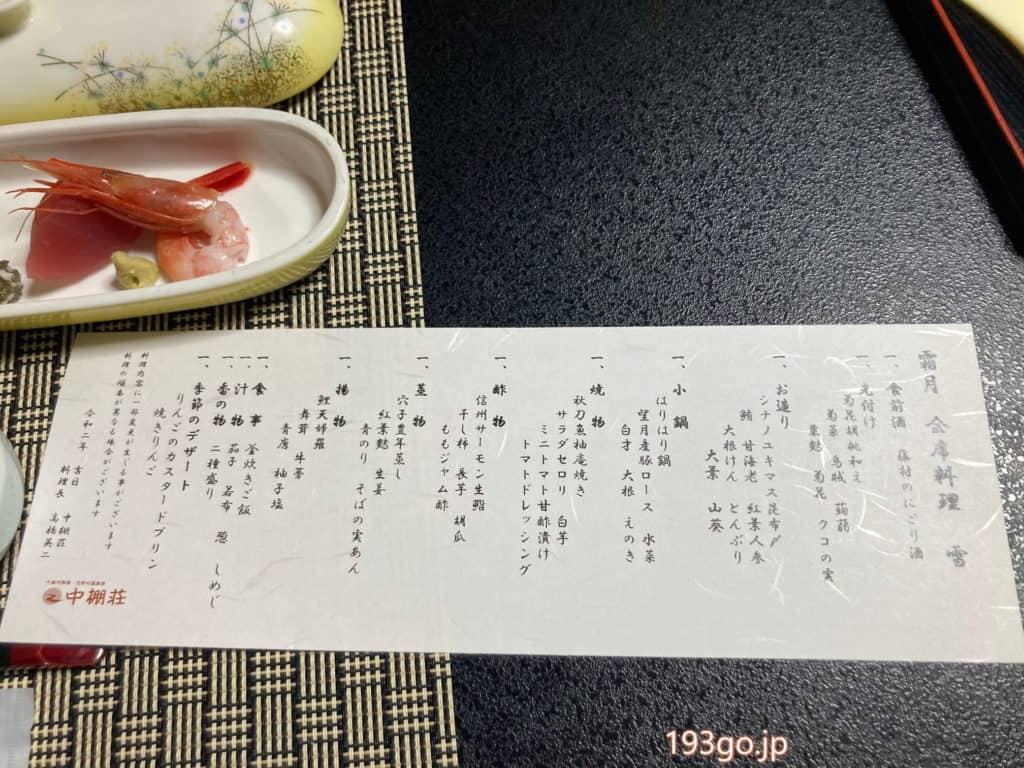 霜月 会席料理 雪
一、食前酒 藤村のにごり酒
一、先付け
菊花胡桃和え
菊菜 烏賊 蒟蒻
粟麩 菊花 クコの実
一、お造り
シナノユキマス昆布〆
鮪 甘海老 紅葉人参
大根けん とんぶり
大葉 山葵
一、小鍋
はりはり鍋
望月産豚ロース 水菜
白才 大根 えのき
一、焼物
秋刀魚柚庵焼き
サラダセロリ 白芋
ミニトマト甘酢漬け
トマトドレッシング
一、酢物
信州サーモン生鮨
干し柿 長芋 胡瓜
ももジャム酢
一、蒸物
穴子豊年蒸し
紅葉麩 生姜
青のり そばの実あん
一、揚物
鯉天婦羅
舞茸 牛蒡
青唐 柚子塩
一、食事 釜炊きご飯
一、汁物 茄子 若布 葱 しめじ
一、香の物 二種盛り
一、季節のデザート
りんごのカスタードプリン
焼きりんご
料理内容に一部変更が生じる事がございます
料理の順番が異なる場合がございます
令和二年 吉日 中棚荘
料理長 高橋英二
中棚荘
193go.jp